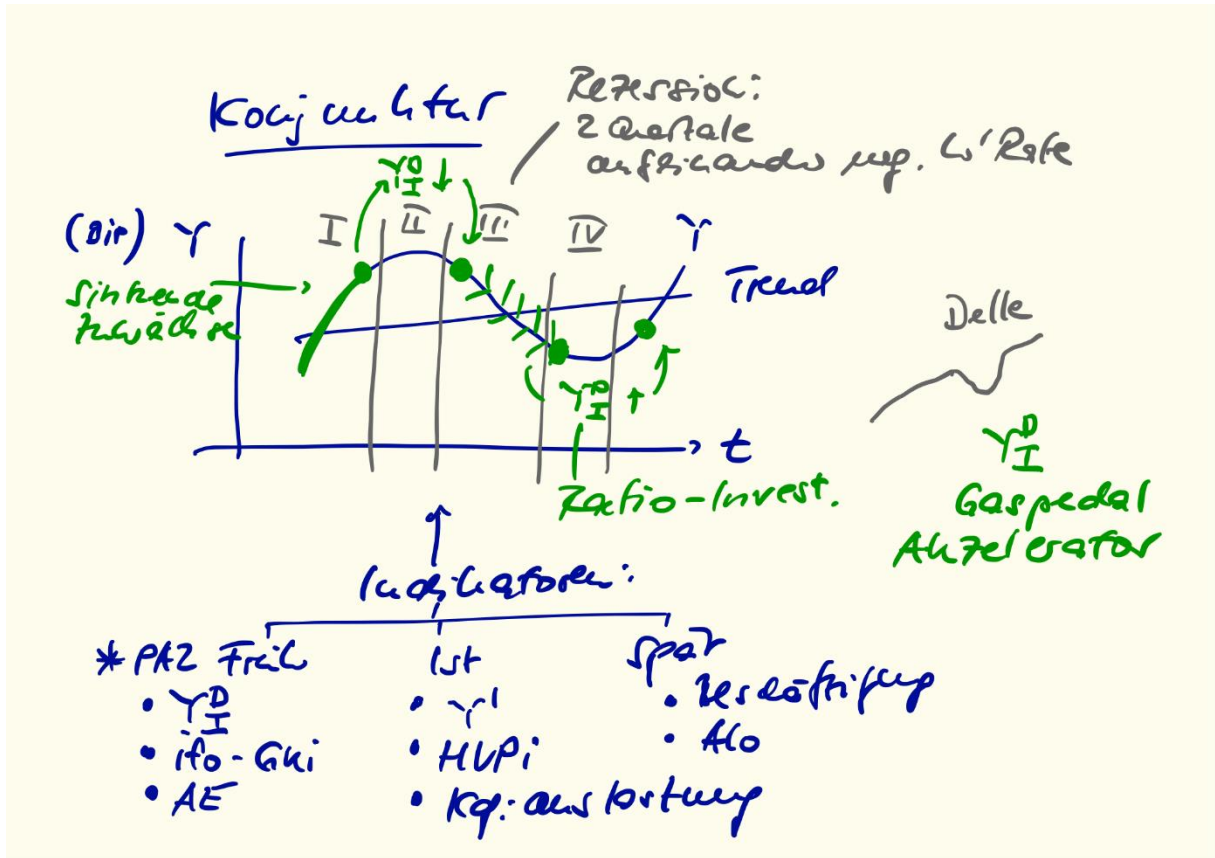 Konjunktur
Rezession:
2 Quartale
aufeinander neg. W'Rate
Y D I ↓
I II III IV
(BIP) Y
Y
Trend
Sinkende
Zuwächse
Delle
Y D I ↑
t
Y D I
Ratio-Invest.
Gaspedal
Akzelerator
Indikatoren:
* PAZ Früh
• Y D I
• ifo-Gki
• AE
Ist
• Y'
• HVPi
• Kap.auslastung
Spät
• Beschäftigung
• Alo